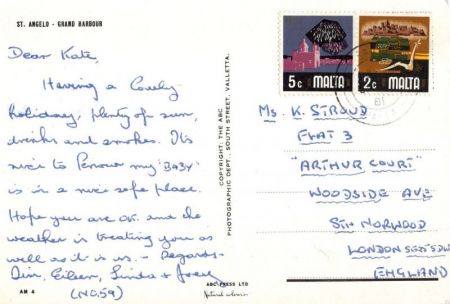 ST. ANGELO - GRAND HARBOUR
Dear Kate,
Having a lovely
holiday, plenty of sun,
drinks and smokes. Its
nice to know my "BABY"
is in a nice safe place.
Hope you are ok. and the
weather is treating you as
well as it is us. - Regards -
Jim, Eileen, Linda &
(NO.59)
AM 4
ABC PRESS LTD
Natural colour
COPYRIGHT: THE ABC
PHOTOGRAPHIC DEPT., SOUTH STREET, VALLETTA.
5c MALTA
2c MALTA
81
Ms. K. STROUD
FLAT 3
"ARTHUR COURT"
WOODSIDE AVE
STH NORWOOD
LONDON
ENGLAND